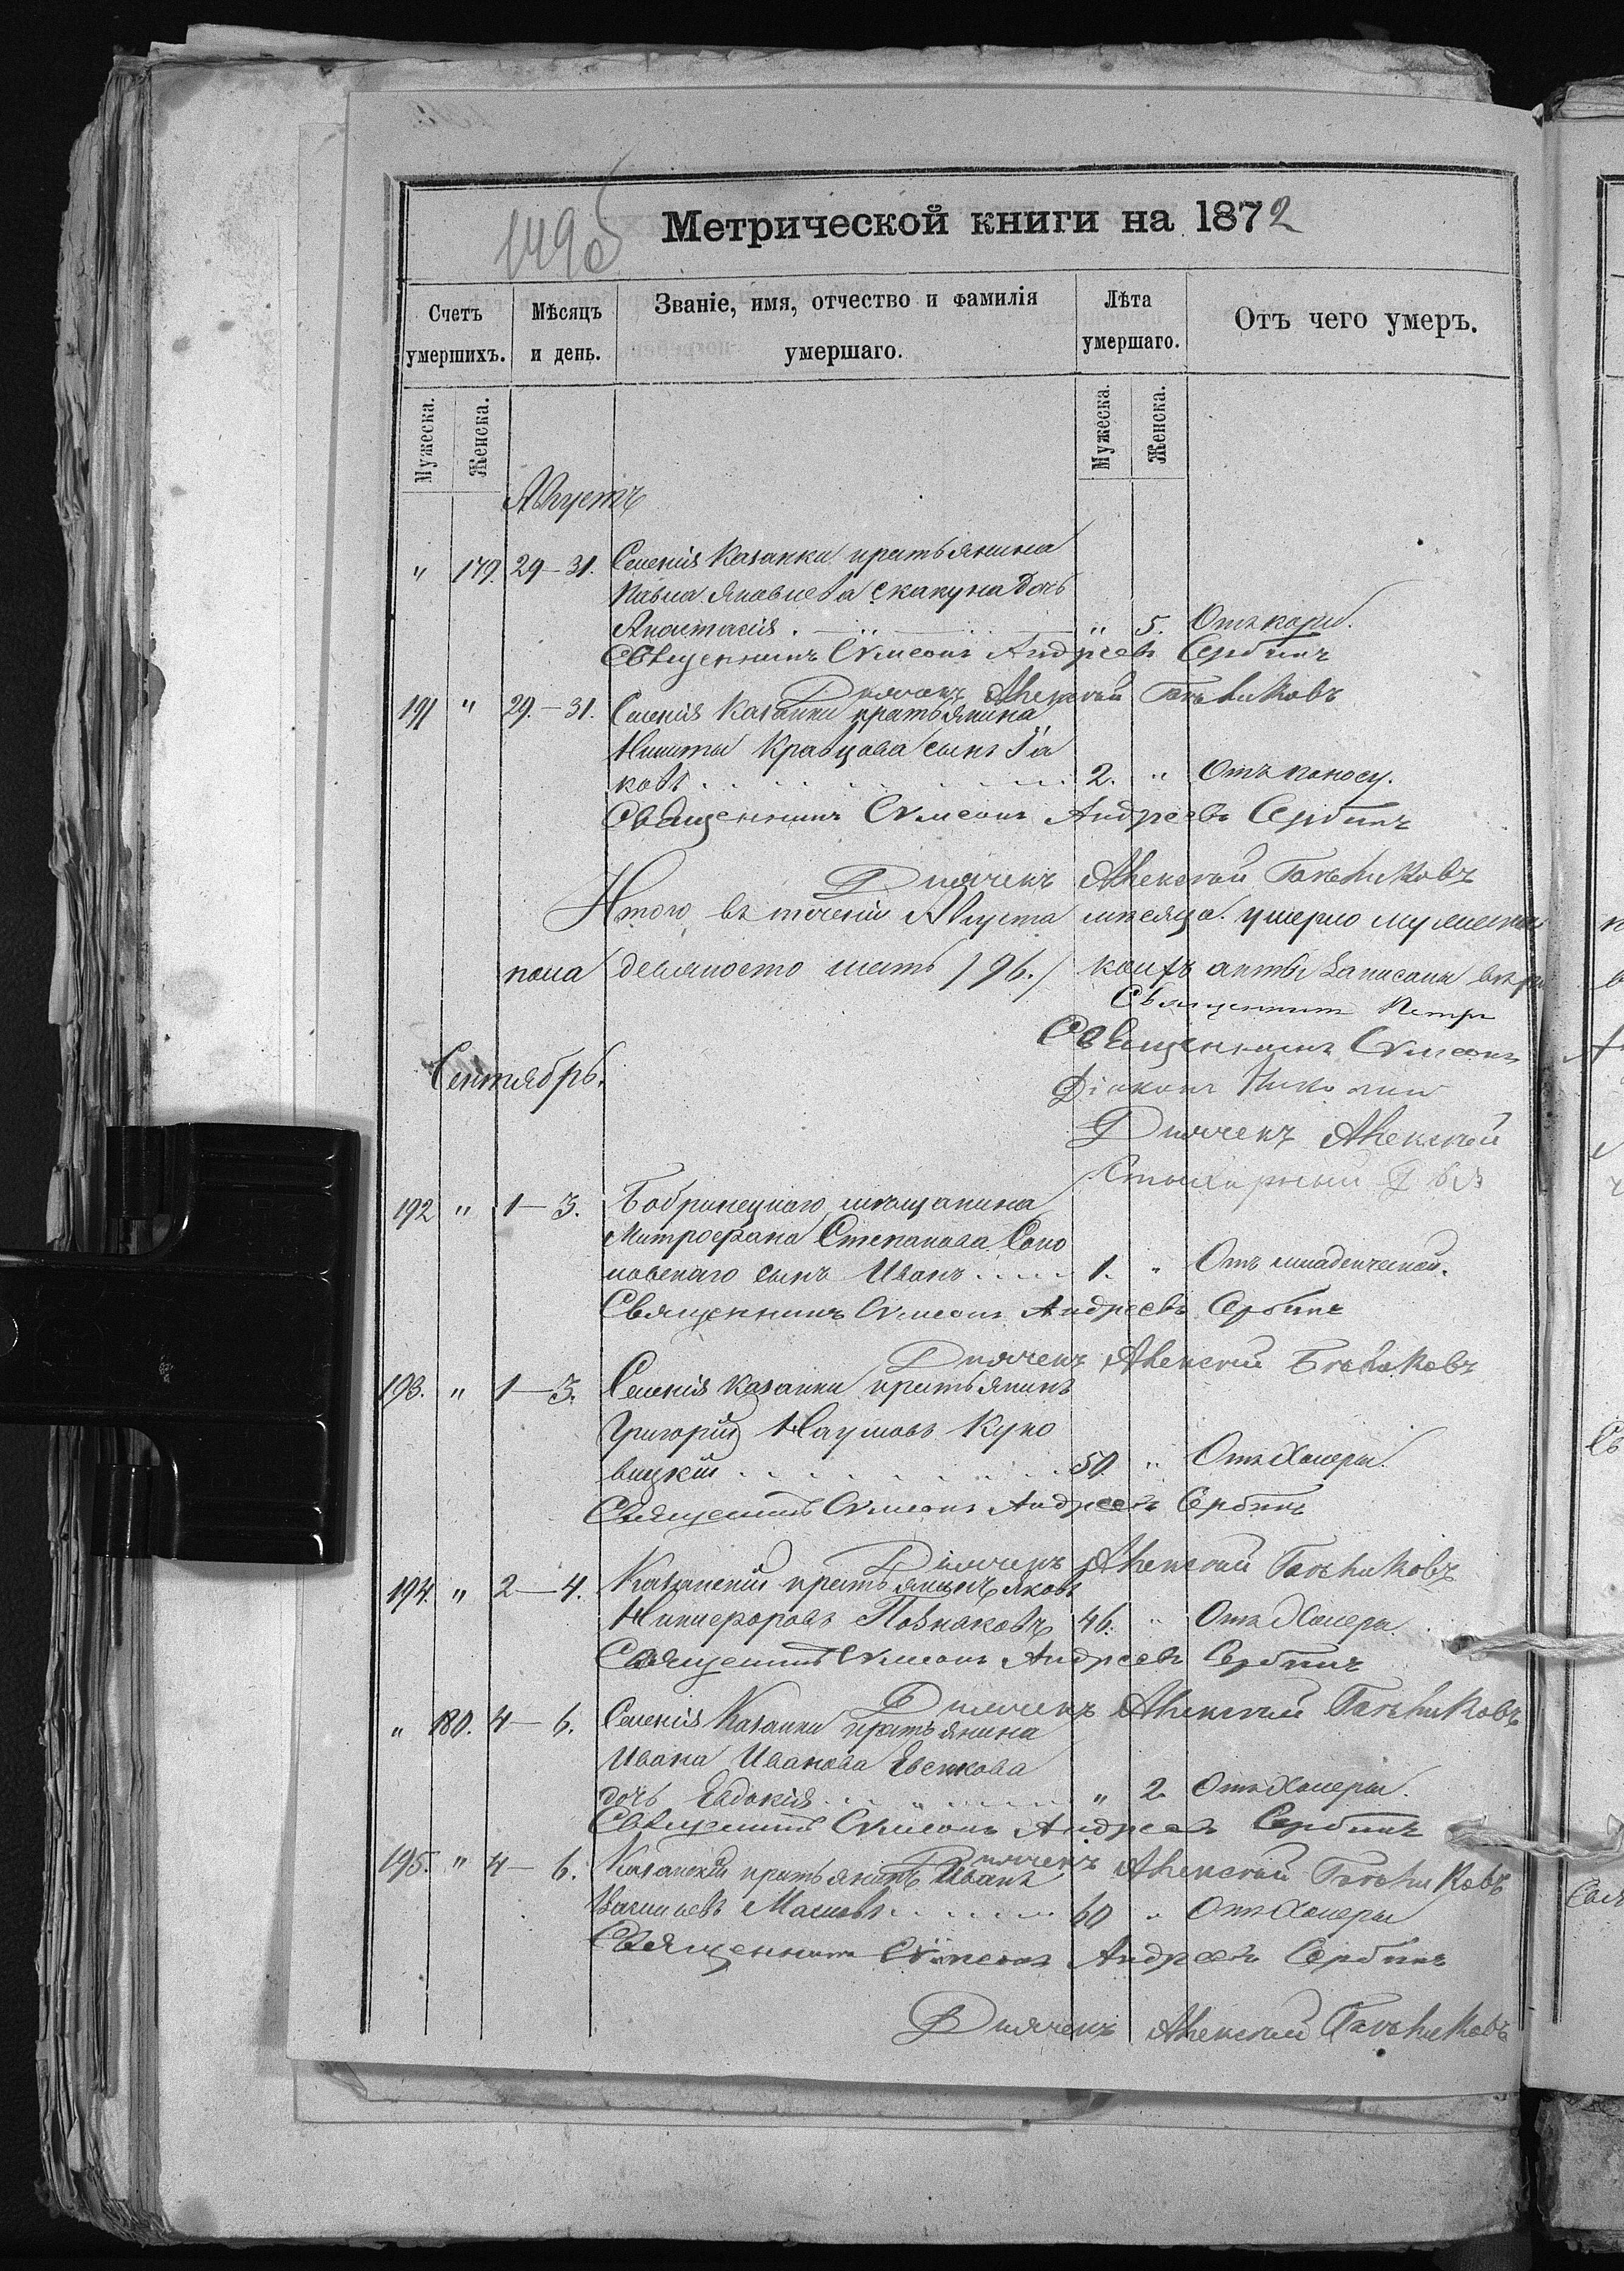 149об
Метрической книги на 1872
Счетъ умершихъ. Мѣсяцъ и день. Званіе, имя, отчество и фамилія умершаго. Лѣта умершаго. Отъ чего умеръ.
Мужеска. Женска. Мужеска Женска.
Августъ
" 179. 29–31. Селенія Казанки крестьянина
Павла Яковлева Скакуна дочь
Анастасія " 5. Отъ кори.
Священникъ Симеонъ Андреевъ Сербинъ
Дьячекъ Алексѣй
191 " 29.–31. Селенія Казанки крестьянина
Никиты Кравцова сынъ Іа
ковъ 2. " Отъ поносу.
Священникъ Симеонъ Андреевъ Сербинъ
Дьячекъ Алексѣй
Итого въ теченіи Августа мѣсяца умерло мужеска
пола девяносто шесть /96./ коихъ акты записаны
Священникъ Петръ
Священникъ Симеонъ
Сентябрь.
Діаконъ Николай
Дьячекъ Алексѣй
192 " 1–3. Бобринецкаго мѣщанина
Митрофана Степанова Соко
ловскаго сынъ Иванъ 1. " Отъ младенческой.
Священникъ Симеонъ Андреевъ Сербинъ
Дьячекъ Алексѣй
193. " 1–3. Селенія Казанки крестьянинъ
Григорій Наумовъ Куко
вицкій 50. " Отъ Холеры.
Священникъ Симеонъ Андреевъ Сербинъ
Дьячекъ Алексѣй
194. " 2–4. Казанскій крестьянинъ Яковъ
Никифоровъ 46. " Отъ Холеры.
Священникъ Симеонъ Андреевъ Сербинъ
Дьячекъ Алексѣй
" 180. 4–6. Селенія Казанки крестьянина
Ивана Иванова
дочь Евдокія " 2. Отъ Холеры.
Священникъ Симеонъ Андреевъ Сербинъ
Дьячекъ Алексѣй
195. " 4–6. Казанскій крестьянинъ Иванъ
Васильевъ Масловъ 60 " Отъ Холеры
Священникъ Симеонъ Андреевъ Сербинъ
Дьячекъ Алексѣй